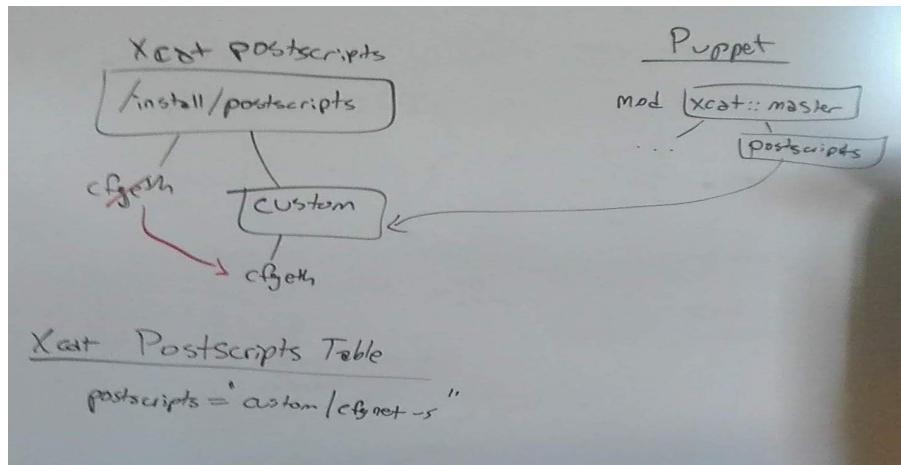 Xcat postscripts
/install/postscripts
cfgeth
custom
cfgeth
Puppet
mod xcat::master
...
postscripts
Xcat Postscripts Table
postscripts="custom/cfgnet-s"